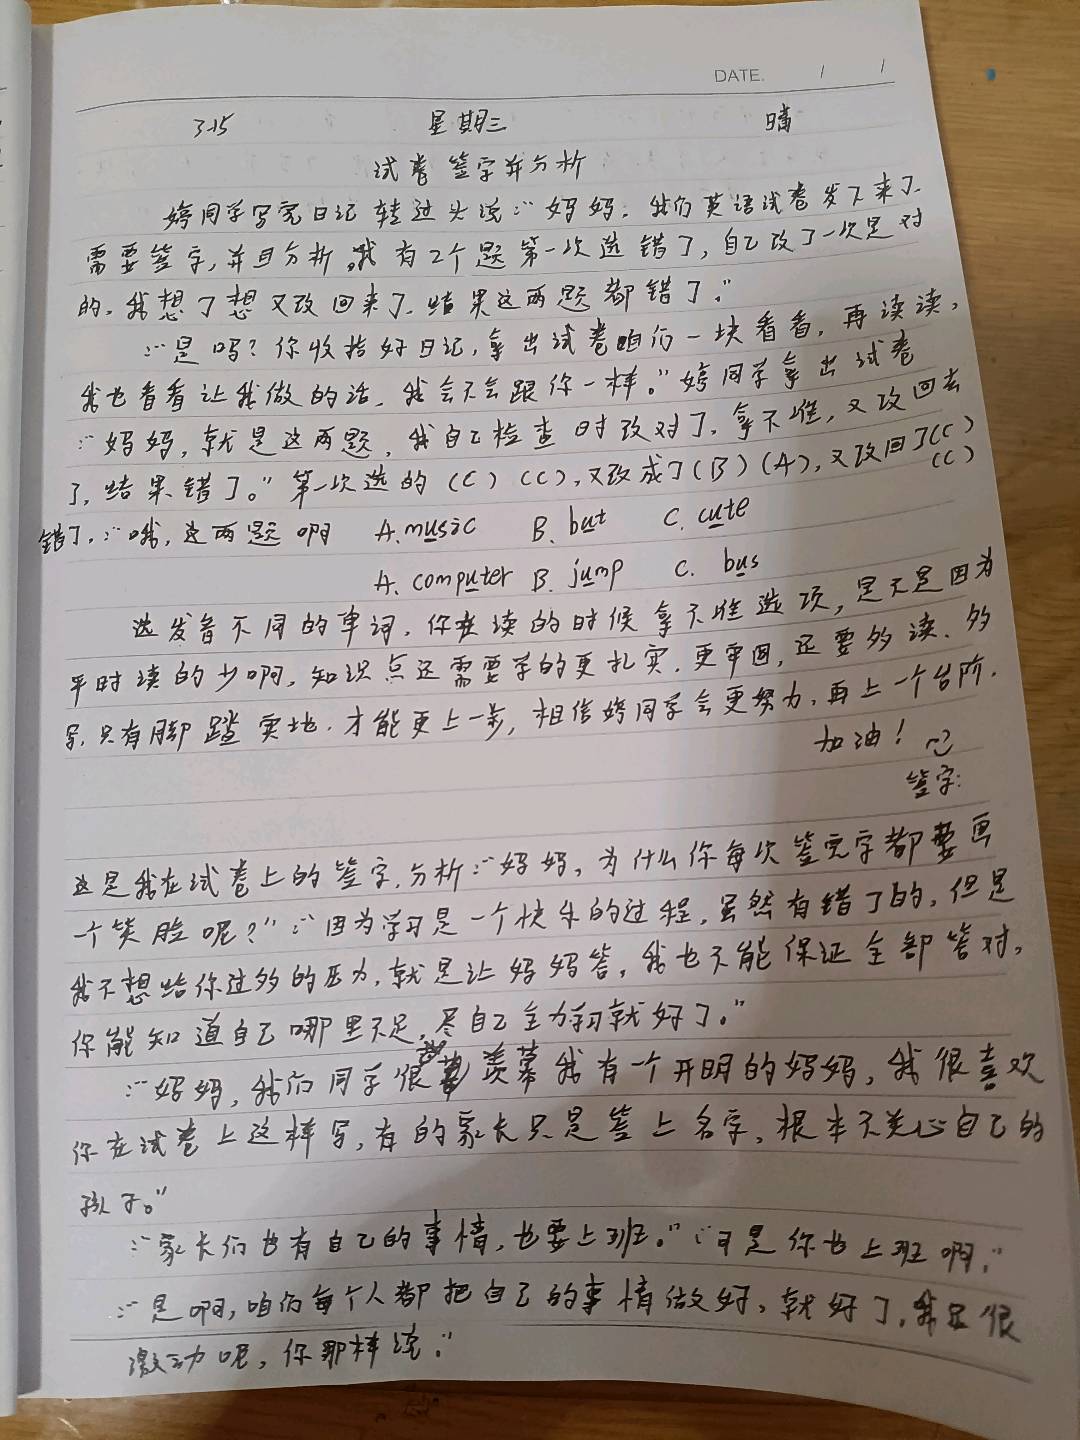 DATE. / /
3.15 星期三 晴
试卷签字并分析
婷同学写完日记转过头说:“妈妈,我们英语试卷发下来了,
需要签字,并且分析。我有2个题第一次选错了,自己改了一次是对
的,我想了想又改回来了,结果这两题都错了。”
:“是吗?你收拾好日记,拿出试卷咱们一块看看,再读读,
我也看看让我做的话,我会不会跟你一样。”婷同学拿出试卷
:“妈妈,就是这两题,我自己检查时改对了,拿不准,又改回去
了,结果错了。”第一次选的(C)(C),又改成了(B)(A),又改回了(C)
(C)
错了,:“哦,这两题啊 A.music B.but C.cute
A.computer B.jump C.bus
选发音不同的单词,你在读的时候拿不准选项,是不是因为
平时读的少啊,知识点还需要学的更扎实,更牢固,还要多读、多
写,只有脚踏实地,才能更上一步,相信婷同学会更努力,再上一个台阶.
加油!
签字:
这是我在试卷上的签字,分析:“妈妈,为什么你每次签完字都要画
一个笑脸呢?”:“因为学习是一个快乐的过程,虽然有错了的,但是
我不想给你过多的压力,就是让妈妈答,我也不能保证全部答对,
你能知道自己哪里不足,尽自己全力就好了。”
:“妈妈,我们同学很羡慕我有一个开明的妈妈,我很喜欢
你在试卷上这样写,有的家长只是签上名字,根本不关心自己的
孩子。”
:“家长们也有自己的事情,也要上班。”:“可是你也上班啊,”
:“是啊,咱们每个人都把自己的事情做好,就好了,我还很
激动呢,你那样说。”